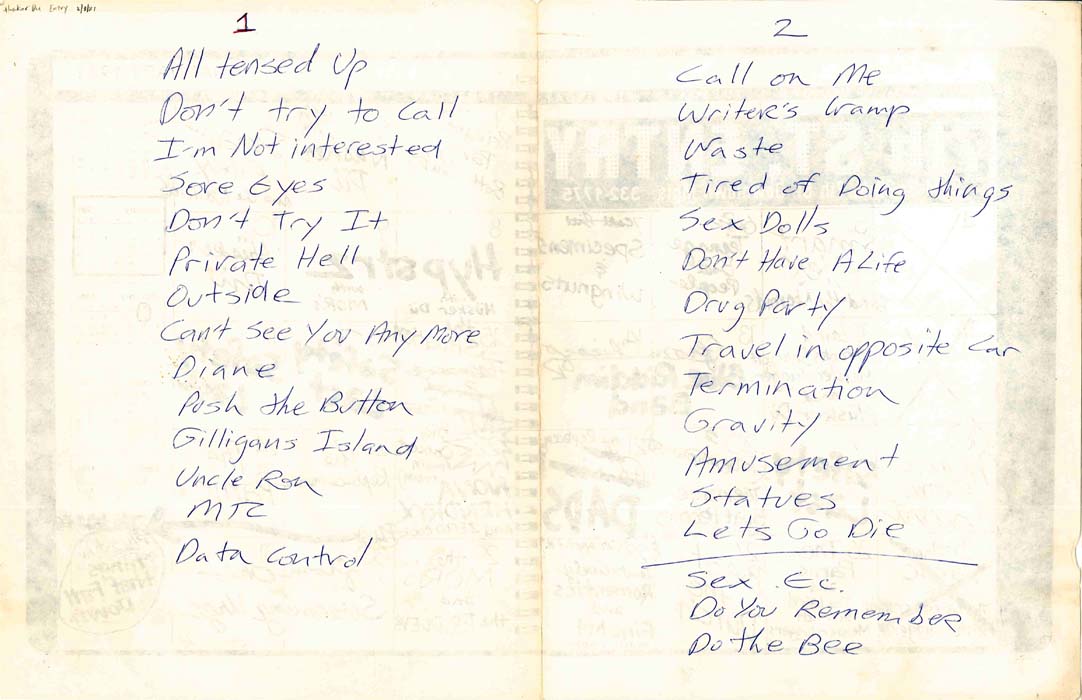 Entry
1
All tensed Up
Don't try to Call
I'm Not interested
Sore Eyes
Don't Try It
Private Hell
Outside
Cant See You Any More
Diane
Push the Button
Gilligans Island
Uncle Ron
MTC
Data Control
2
Call on Me
Writere's Cramp
Waste
Tired of Doing things
Sex Dolls
Don't Have A Life
Drug Party
Travel in opposite Car
Termination
Gravity
Amusement
Statues
Lets Go Die
Sex Ec.
Do You Remember
Do the Bee